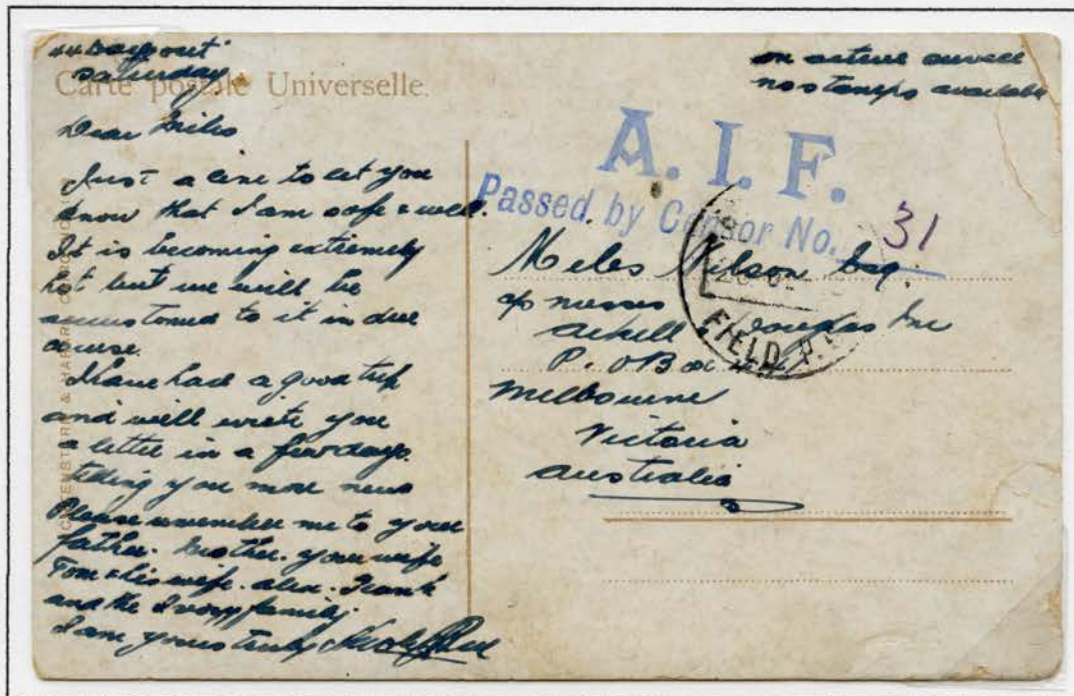 Days out
Saturday
Carte postale Universelle.
Dear Miles
Just a line to let you
know that I am safe & well.
It is becoming extremely
hot but we will be
accustomed to it in due
course.
I have had a good trip
and will write you
a letter in a few days.
telling you more news
Please remember me to your
father. brother. your wife
Tom & his wife. alex. Frank
and the family
I am yours truly
on active service
no stamps available
A. I. F.
Passed by Censor No. 31
Miles Wilson Esq.
c/o messrs
P.O Box
Melbourne
Victoria
Australia
FIELD P.